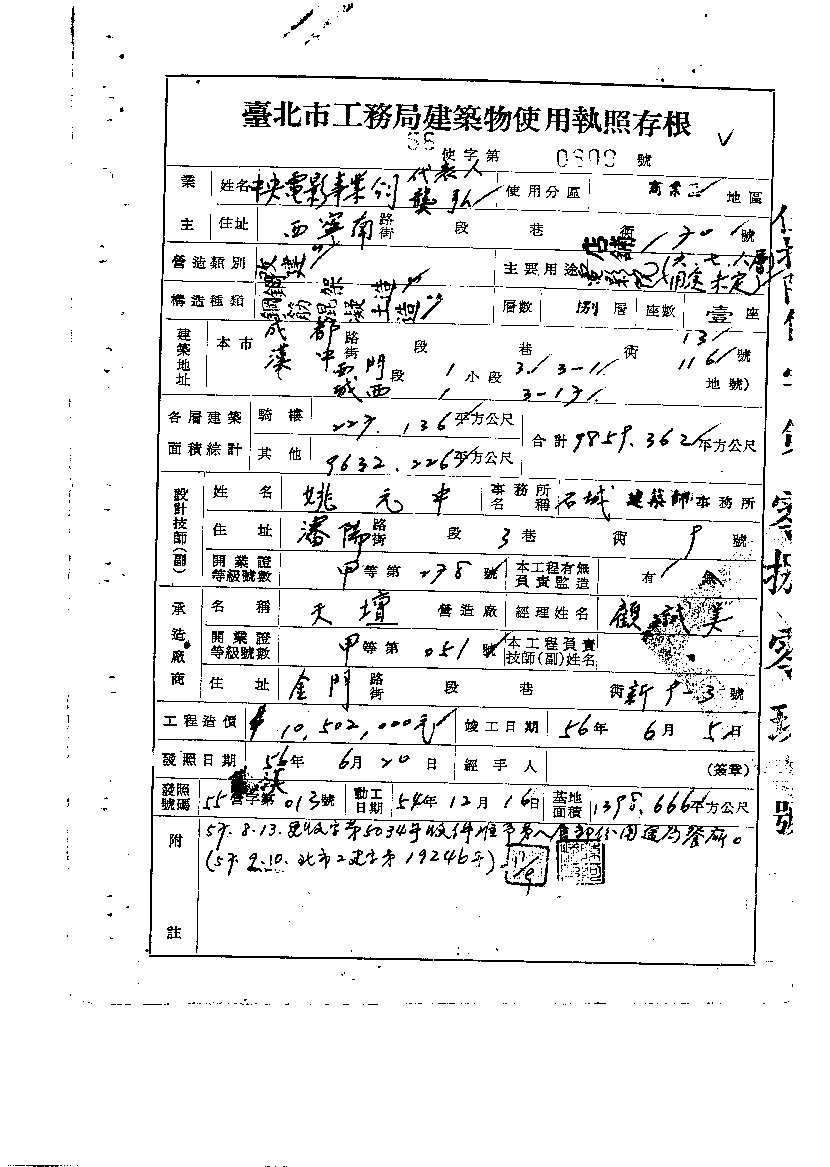 臺北市工務局建築物使用執照存根
56 使字第 0809 號
業 姓名 中央電影事業公司 代表人 龔弘 使用分區 商業區 地區
主 住址 西寧南 路街 段 巷 街 70 號
營造類別 改建 主要用途 店舖 電影院 (六、七、八層用途未定)
構造種類 鋼架造 鋼筋混凝土造 層數 捌 層 座數 壹 座
建築地址 本市 成都 路街 段 巷 街 13 號
漢中 116
西門 段 1 小段 3 3-11 地號)
城西 1 3-131
各層建築面積綜計 騎樓 227.136 平方公尺 合計 9859.362 平方公尺
其他 9632.226 平方公尺
設計技師(副) 姓名 姚元中 事務所名稱 石城 建築師 事務所
住址 瀋陽 路街 段 3 巷 街 9 號
開業證等級號數 甲 等第 278 號 本工程有無負責監造 有 無
承造廠商 名稱 天壇 營造廠 經理姓名 顧誠美
開業證等級號數 甲 等第 051 號 本工程負責技師(副)姓名
住址 金門 路街 段 巷 街 新9-3 號
工程造價 10,502,000元 竣工日期 56年 6月 5日
發照日期 56年 6月 20日 經手人 (簽章)
發照號碼 55 營字第 013 號 動工日期 54年 12月 16日 基地面積 1398.666 平方公尺
附註 57.8.13. 收字第5034號收件准予第八層部份用途為餐廳。
(57.9.10. 北市工建字第19246號)